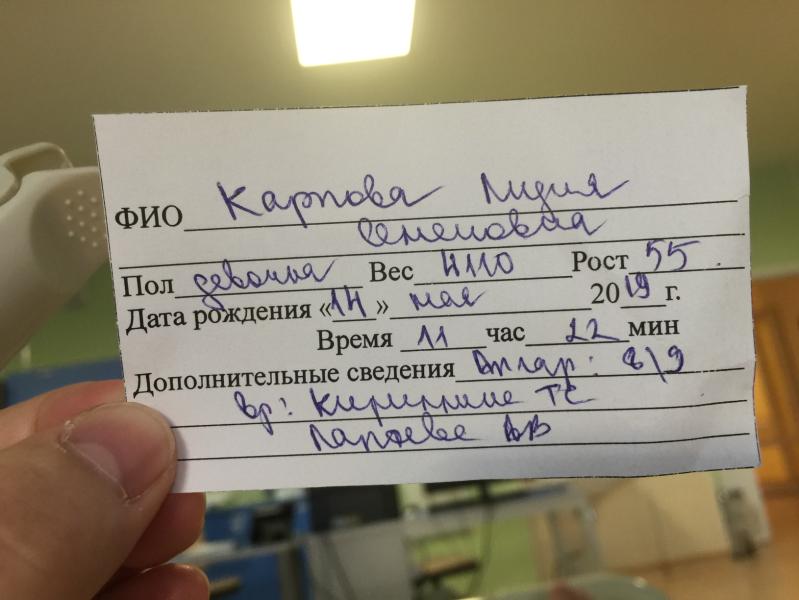 ФИО Карпова Лидия
Семеновна
Пол девочка Вес 4110 Рост 55
Дата рождения «14» мая 2019 г.
Время 11 час 22 мин
Дополнительные сведения Апгар: 8/9
вр: ТС
ВВ